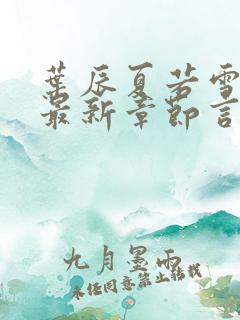 葉辰夏若雪
最新章節言
九月墨雨
未经同意禁止转载